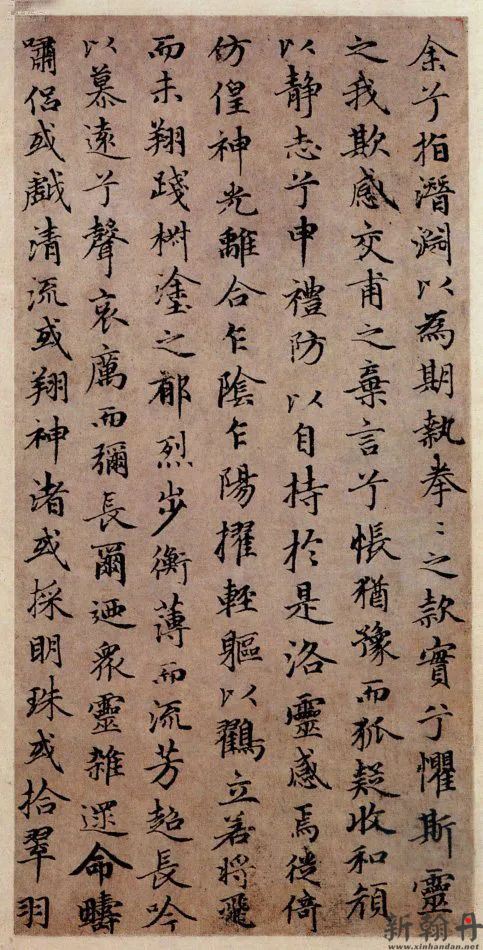 余兮指潛淵以為期執拳〻之款實兮懼斯靈
之我欺感交甫之棄言兮悵猶豫而狐疑收和顏
以靜志兮申禮防以自持於是洛靈感焉徙倚
仿偟神光離合乍陰乍陽擢輕軀以鸖立若將飛
而未翔踐椒塗之郁烈步衡薄而流芳超長吟
以慕遠兮聲哀厲而彌長爾迺眾靈雜遝命疇
嘯侶或戲清流或翔神渚或採明珠或拾翠羽
新翰丹
www.xinhandan.net